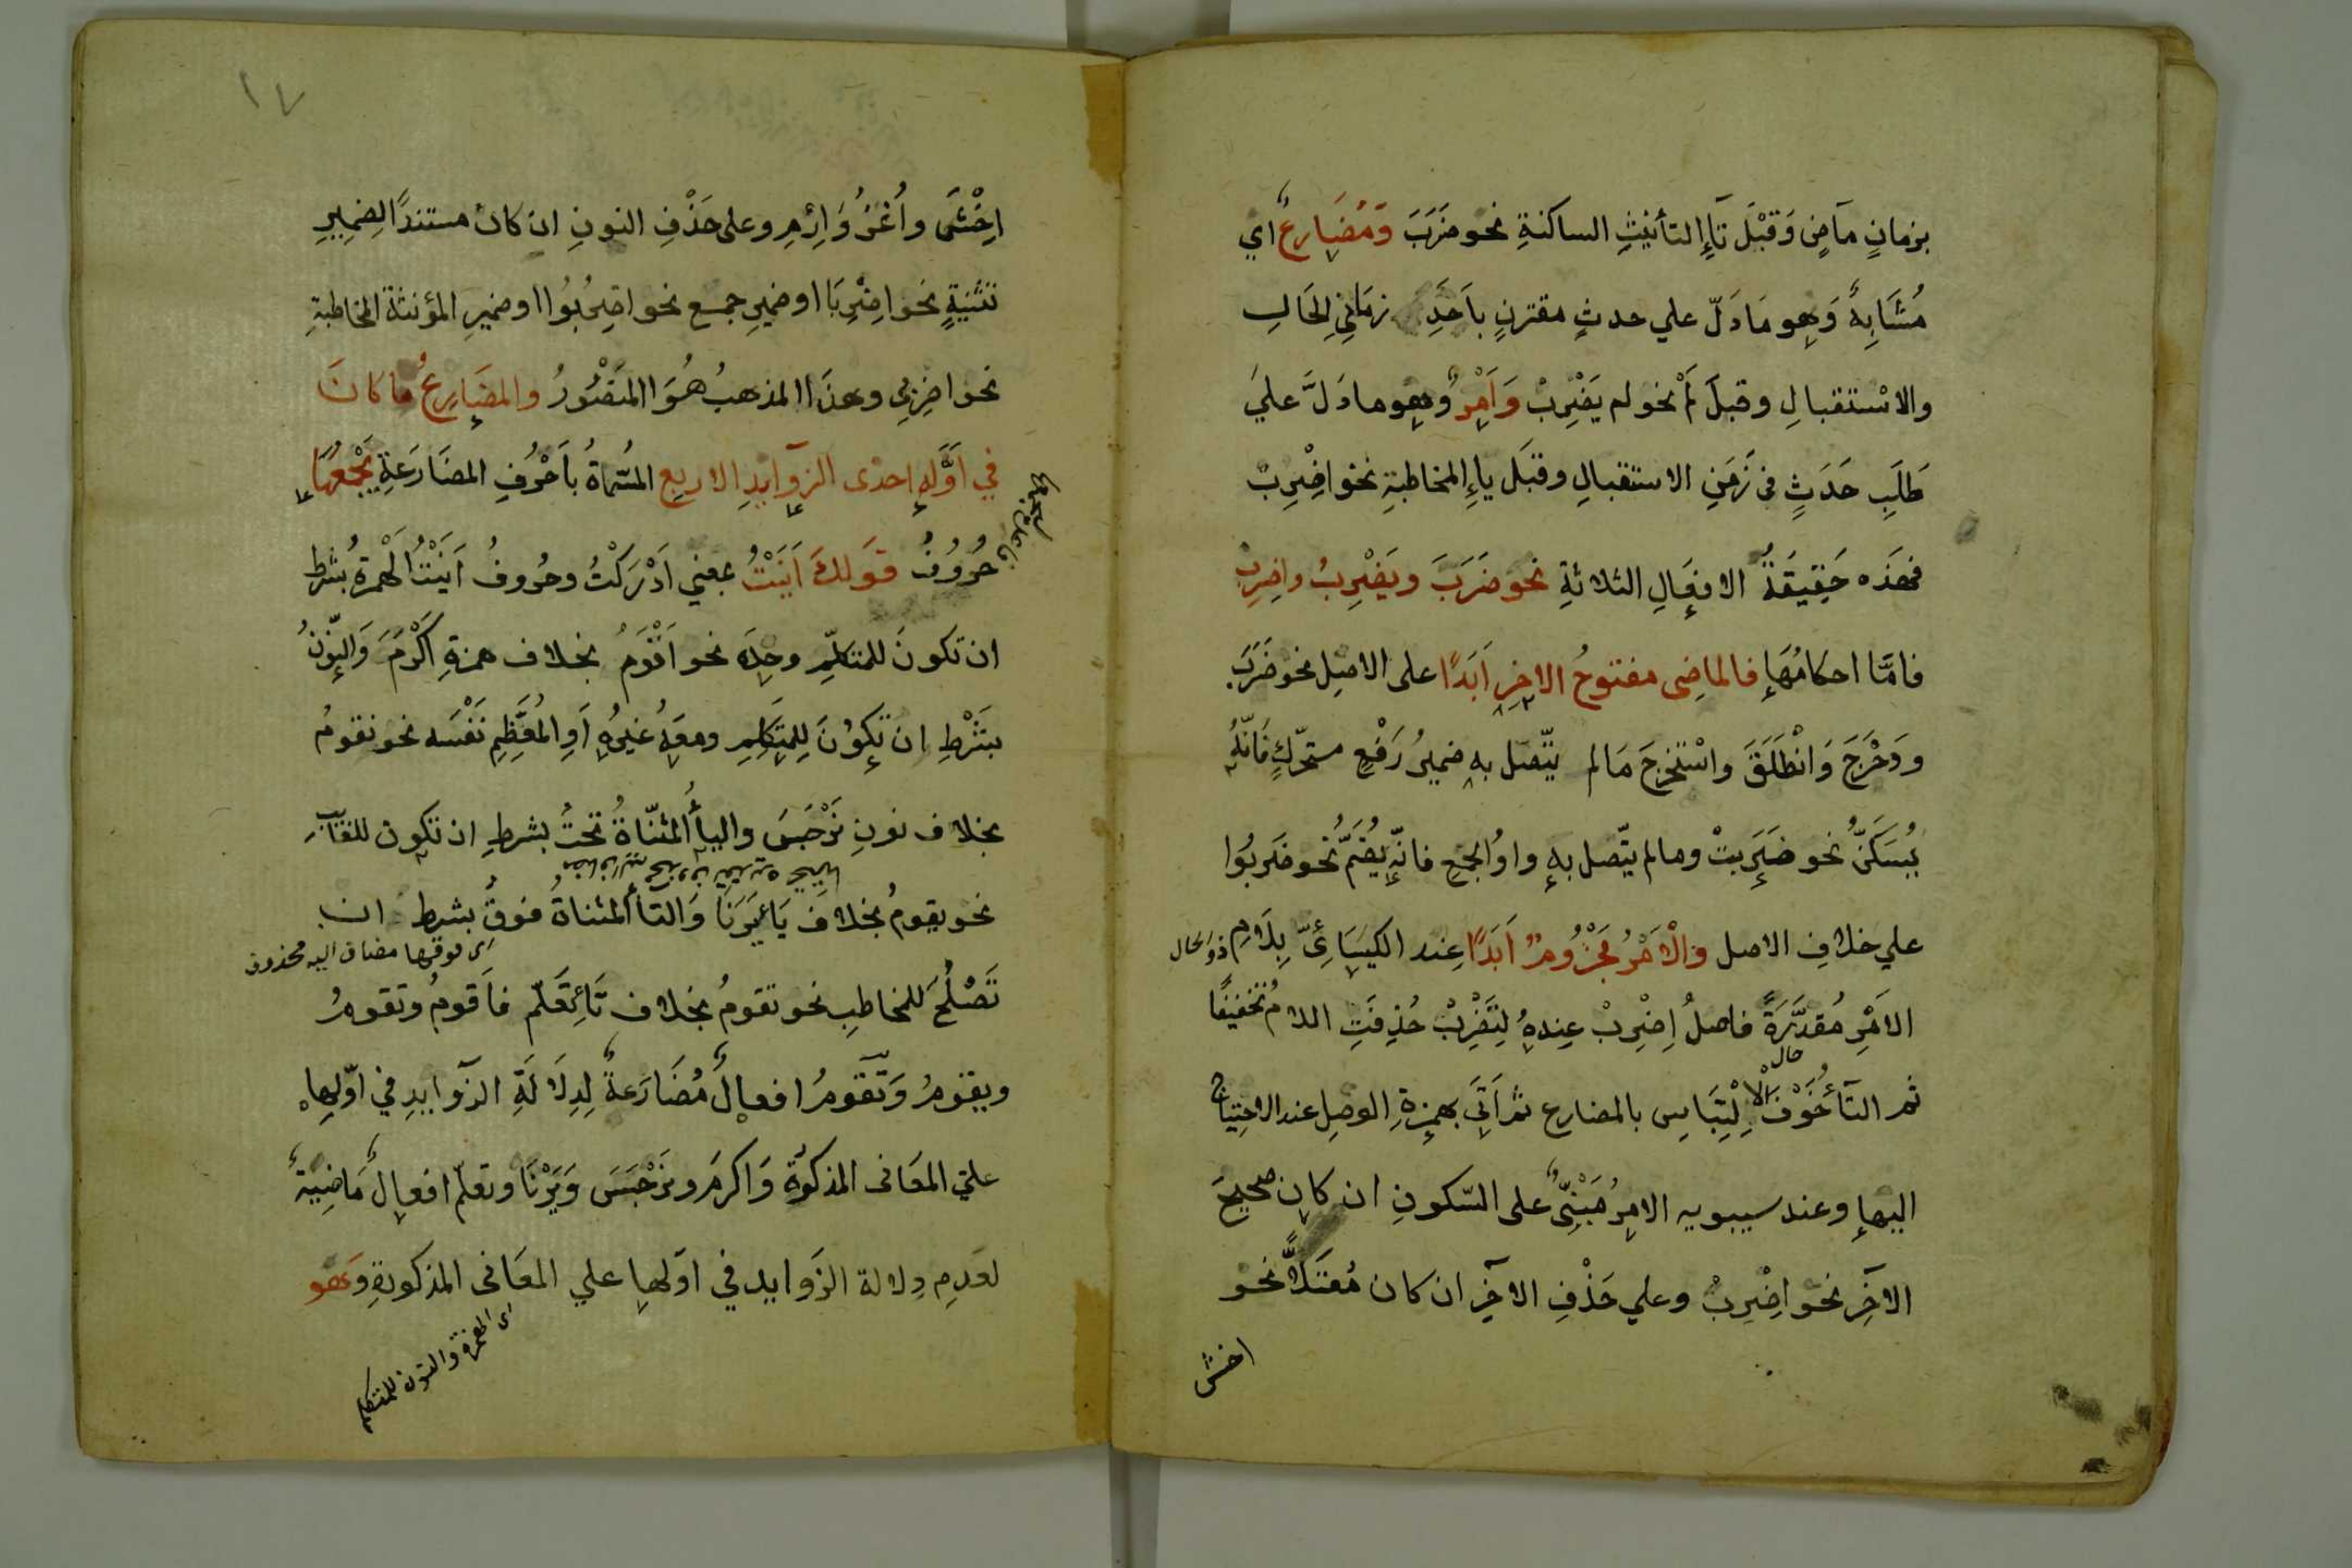 بزمانٍ مآضٍ وَقَبْلَ تآءِ التأنيثِ الساكنةِ نحو ضَرَبَ وَمُضَارِعٌ اي
مُشَابِهٌ وَهو مَا دَلّ علي حدثٍ مقترنٍ باَحَدِ زمَانَيِ الحَالِ
والاسْتقبالِ وقبلَ لَمْ نحو لم يَضْرِبْ وَاَمْرٌ وَهو ما دَلَّ عليَ
طَلَبِ حَدَثٍ فى زَمَنِ الاستقبالِ وقبَلَ ياءِ المخاطبةِ نحْوَ اضْرِبْ
فهذه حَقِيقَةُ الافعَالِ الثلاثةِ نحو ضَرَبَ ويَضْرِبُ واضِرِبْ
فامَّا احكامُهَا فالماضِى مفتوحُ الاخِرِ اَبَدًا على الاصِل نحو ضَرَبَ
ودَحْرَجَ وَانْطَلَقَ واسْتَخرجَ مَالم يتّصل به ضميرُ رَفْعٍ متحرّكٍ فَانّهُ
يُسَكَنُّ نحو ضَرَبتْ ومالم يتّصل بهِ واوُ الجمعِ فانّه يُضَمُّ نحو ضَربُوا
علي خلافِ الاصل والْاَمْرُ مَجْزُومٌ اَبَدًا عِند الكِسَائىّ بِلَامِ
ذو الحال
الاَمْرِ مُقدَّرَةً فاصلُ اِضْرِبْ عِندهُ لِتَضْرِبْ حُذِفَتِ اللامُ تخفيفًا
حال
ثم التآءُ خَوْفَ الاِلْتِبَاسِ بالمضارع ثم اَتَي بهمزةِ الوصلِ عند الاحتياج
اليها وعند سيبويه الامرُ مَبْنِىٌّ على السّكونِ ان كان صحيحَ
الآخِرِ نحو اضْرِبْ وعلي حَذْفِ الاخِرِ ان كان مُعْتَلًّا نحو
اخش
١٧
اِخْشَى واُغْزُ وَاِرْمِ وعلى حَذْفِ النونِ ان كان مستندًا لِضميرِ
تثنيَةٍ نحو اضْرِبَا او ضميرِ جمع نحو اضِربُوا او ضميرِ المؤنثة المخاطبةِ
نحو اضِربِى وهذَا المذهبُ هُوَ المنَصُورُ والمضَارِعُ ما كانَ
فِي اَوَّلِهِ اِحدَى الزوآيدِ الاربعِ المُسمّاةُ باَحْرُفِ المضَارَعَةِ يَجْمعُهَا
حُرُوفُ قوَلكَ اَنَيْتُ بمعني اَدْرَكْتُ وحُروفُ اَنَيْتُ الْهمزةُ بشرط
ان تكونَ للمتكلّمِ وحدَه نحو اَقْوَمُ بخلاف همزةِ اَكْرَمَ وَالنّونُ
بِشَرْطِ ان تكوُنَ لِلمتَكلِمِ ومعَهُ غيرُهُ اَوِ المُعَظّمِ نَفْسَه نحو نقومُ
بخلاف نونِ نَرْجَسَ واليأُ المثنّاةُ تحتُ بشرطِ ان تكون للغائبِ
نحو يقومُ بخلافِ يَاءِ يَرَنَا وَالتاءُ المثناةُ فوقُ بشرط ان
اى فوقها مضاف اليه محذوف
تَصْلُحَ للمخاطبِ نحو تقومُ بخلاف تَاءِ تَعَلّم فاَقومُ وتقومُ
ويقومُ وَتَقومُ افعالٌ مُضَارَعةٌ لِدِلَالَةِ الزوآيدِ في اوّلِها
عليَ المعَانى المذكورَة وَاكرمَ ونَرْجَسَ وَيَرْنَا وتعلّم افعالٌ مَاضِيَةٌ
لعَدمِ دِلالة الزَوايد في اوّلها علي المعَانى المذكورةِ وَهو
اى الهمزة والنون للمتكلم